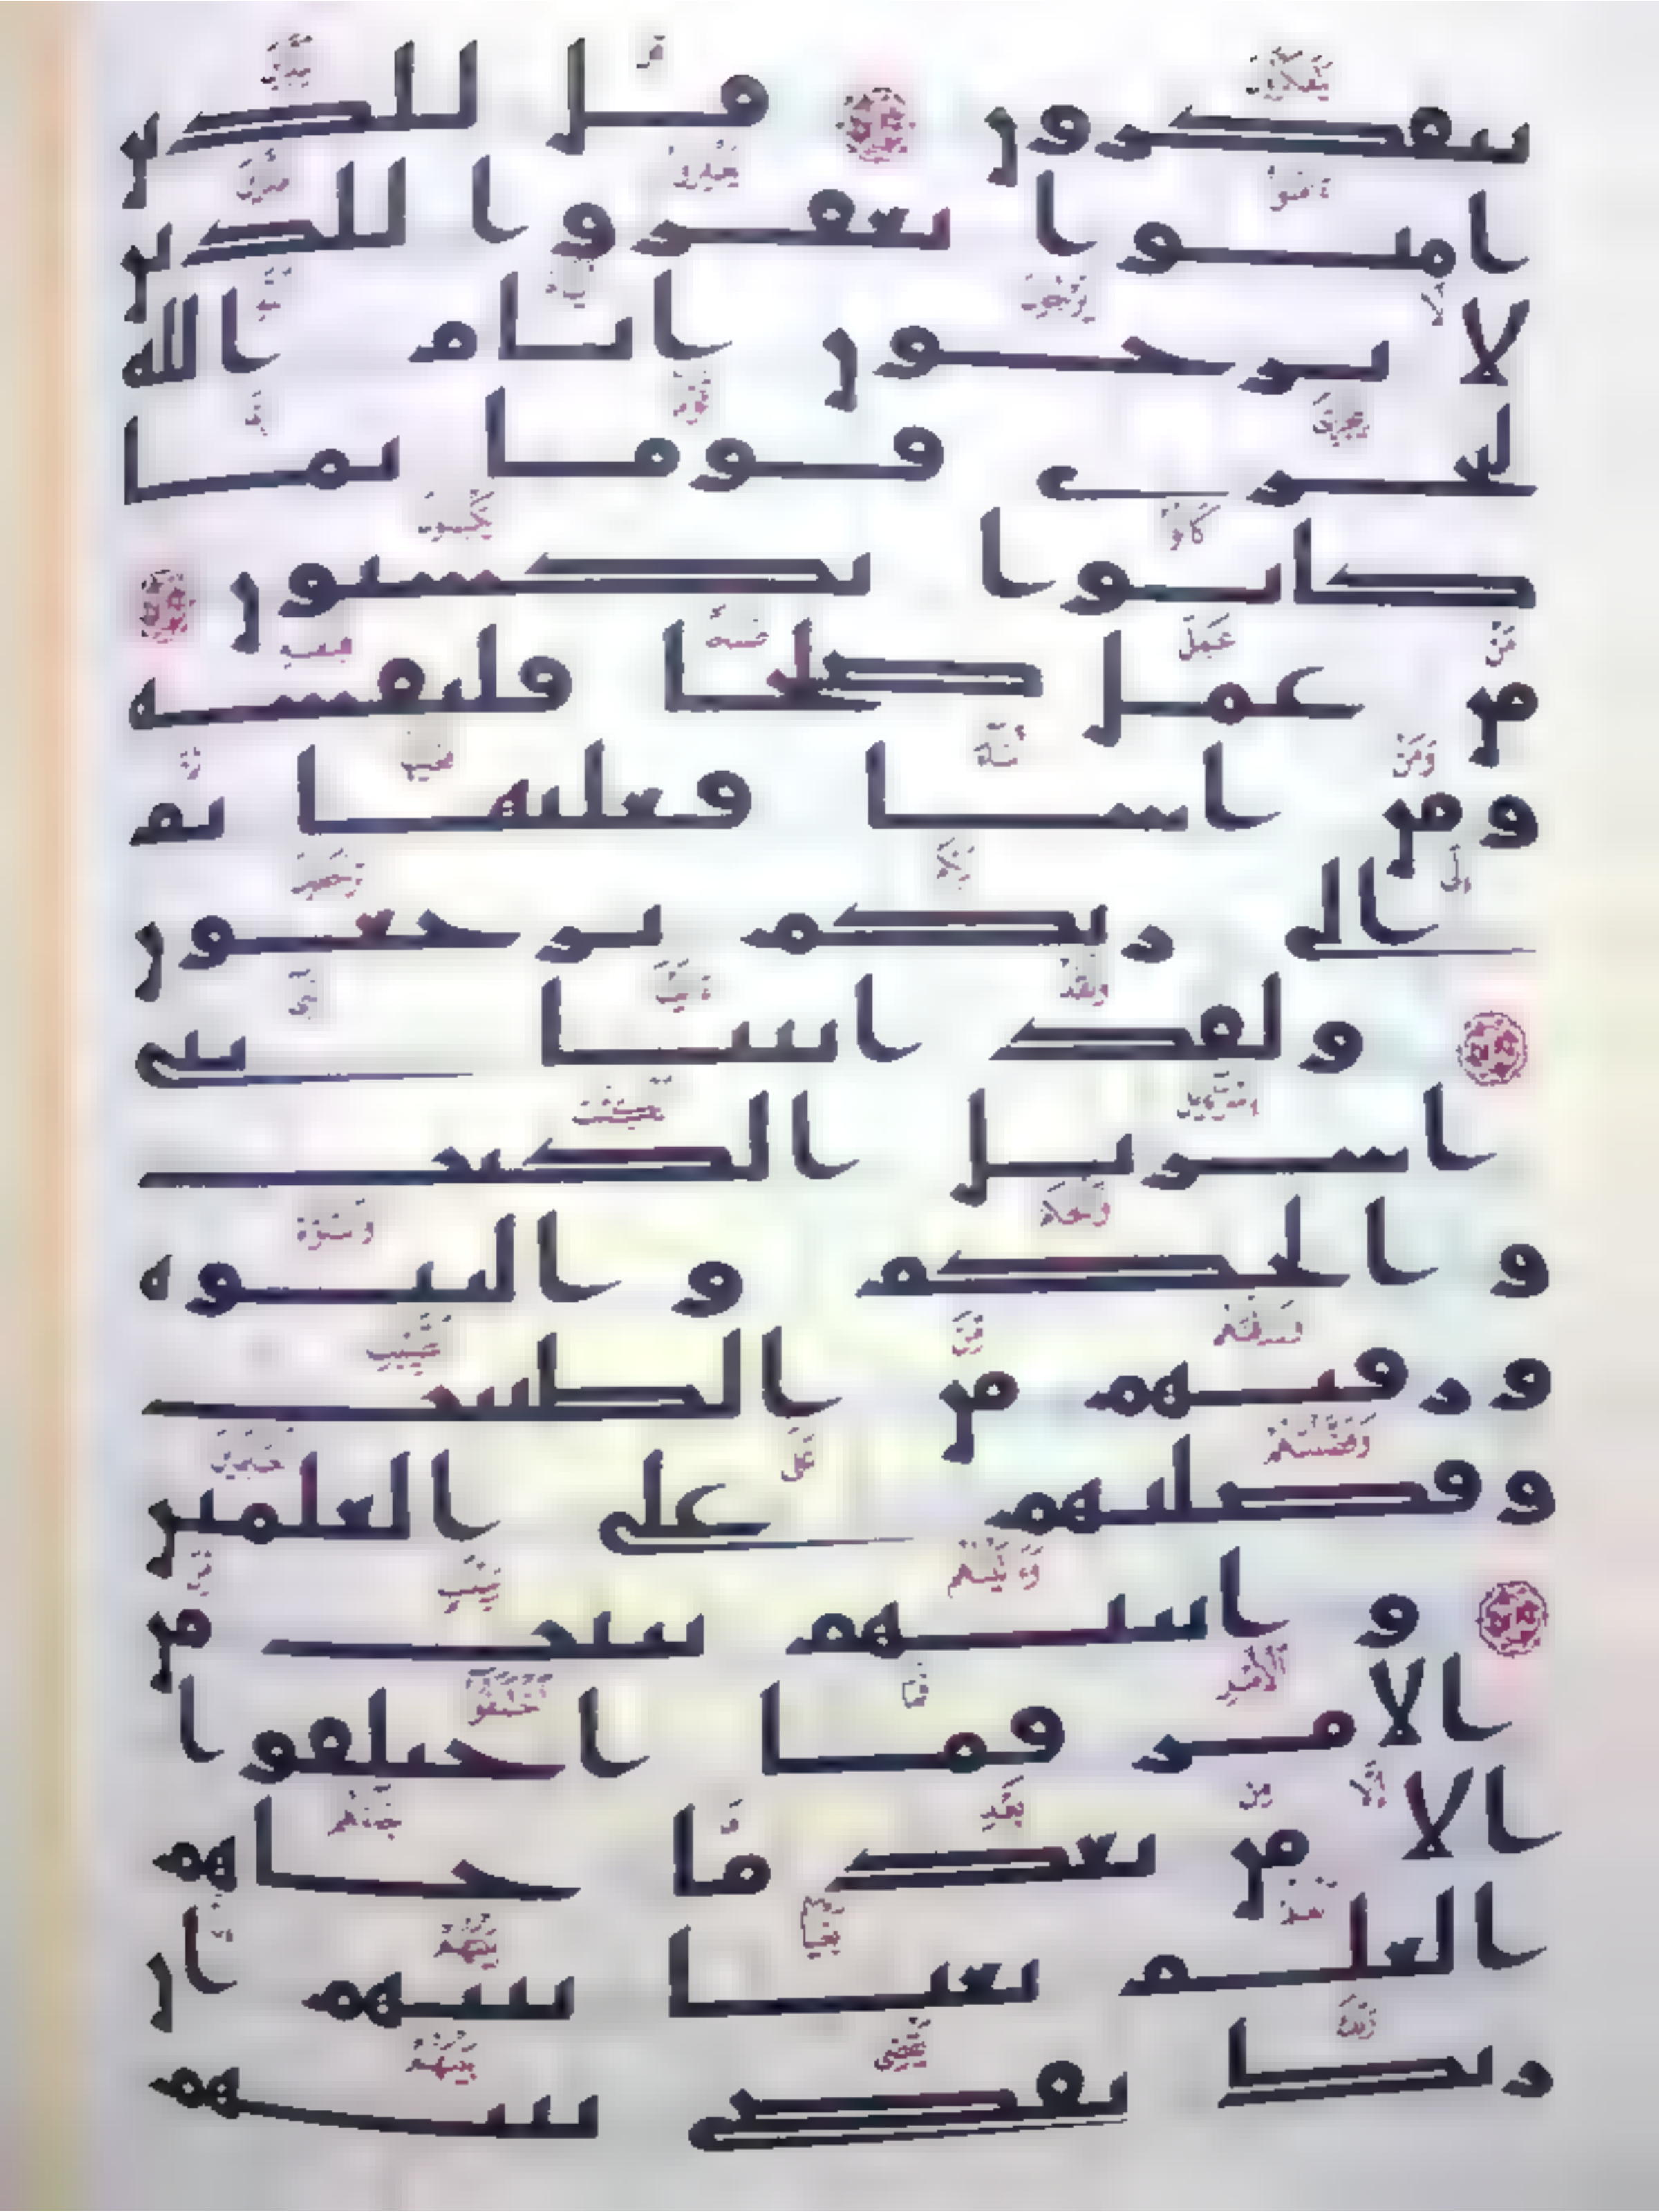 يتفكرون قل للذين
امنوا يغفروا للذين
لا يرجون ايام الله
ليجزي قوما بما
كانوا يكسبون
من عمل صلحا فلنفسه
ومن اسا فعليها ثم
الى ربكم ترجعون
ولقد اتينا بني
اسريل الكتب
و الحكم و النبوه
ورزقنهم من الطيبت
وفضلنهم على العلمين
و اتينهم بينت من
الامر فما اختلفوا
الا من بعد ما جاهم
العلم بغيا بينهم ان
ربك يقضي بينهم